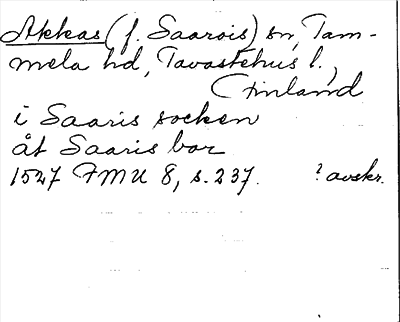 Akkas (f. Saarois) sn, Tam-
mela hd, Tavastehus l.,
(Finland
i Saaris socken
åt Saaris bor
1527 FMU 8, s. 237. ? avskr.